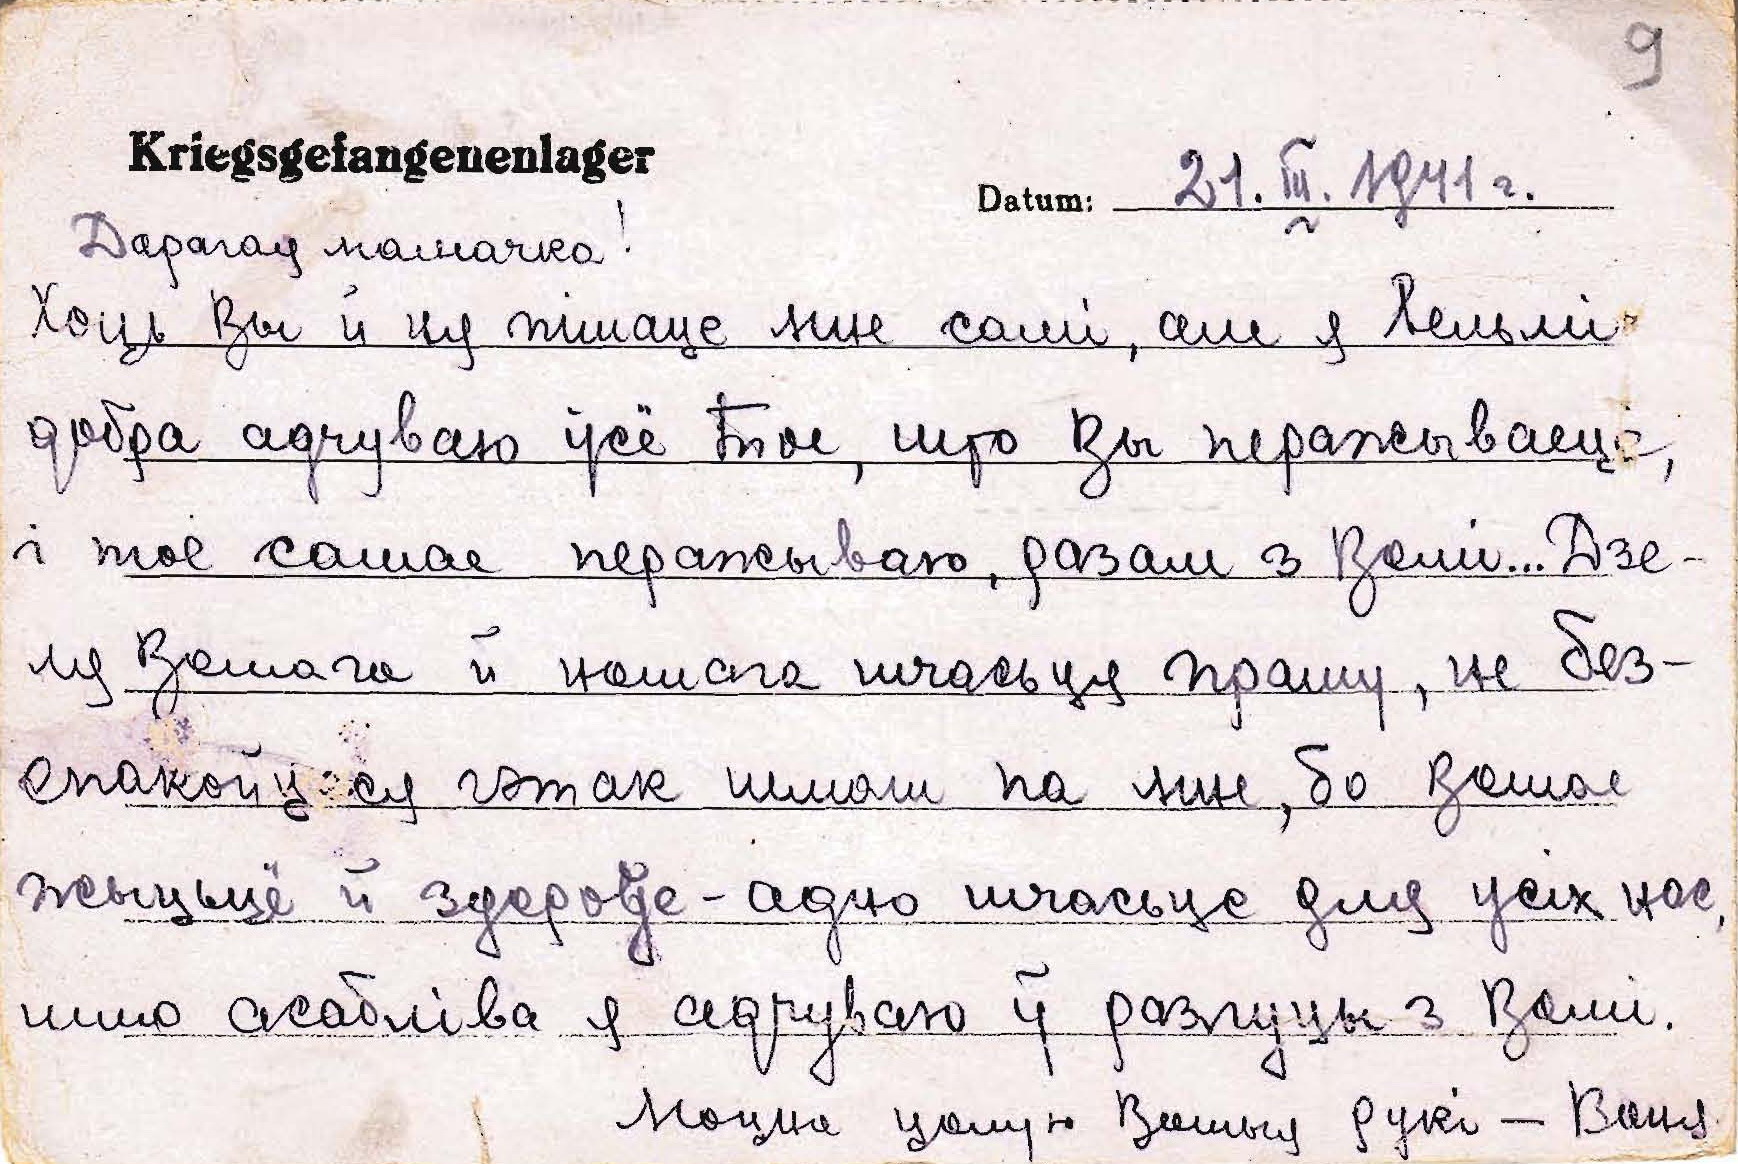 9
Kriegsgefangenenlager
Datum: 21. III. 1941 г.
Дарагая мамачка!
Хоць Вы й ня пішаце мне самі, але я вельмі
добра адчуваю ўсё тое, што Вы перажываеце,
і тое самае перажываю, разам з Вамі... Дзе-
ля Вашага й нашага шчасьця прашу, не без-
спакойцеся гэтак шмат па мне, бо Вашае
жыцьцё й здароўе - адно шчасьце для усіх нас,
што асабліва я адчуваю ў разлуцы з Вамі.
Моцна цалую Вашыя рукі — Ваня